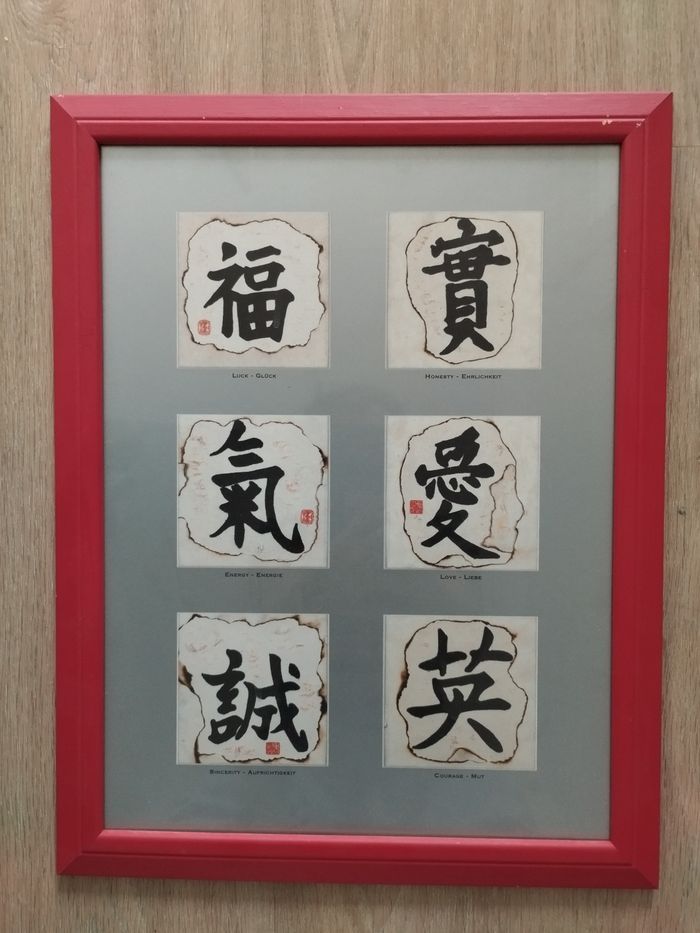 福
實
LUCK - GLÜCK
HONESTY - EHRLICHKEIT
氣
愛
ENERGY - ENERGIE
LOVE - LIEBE
誠
英
SINCERITY - AUFRICHTIGKEIT
COURAGE - MUT